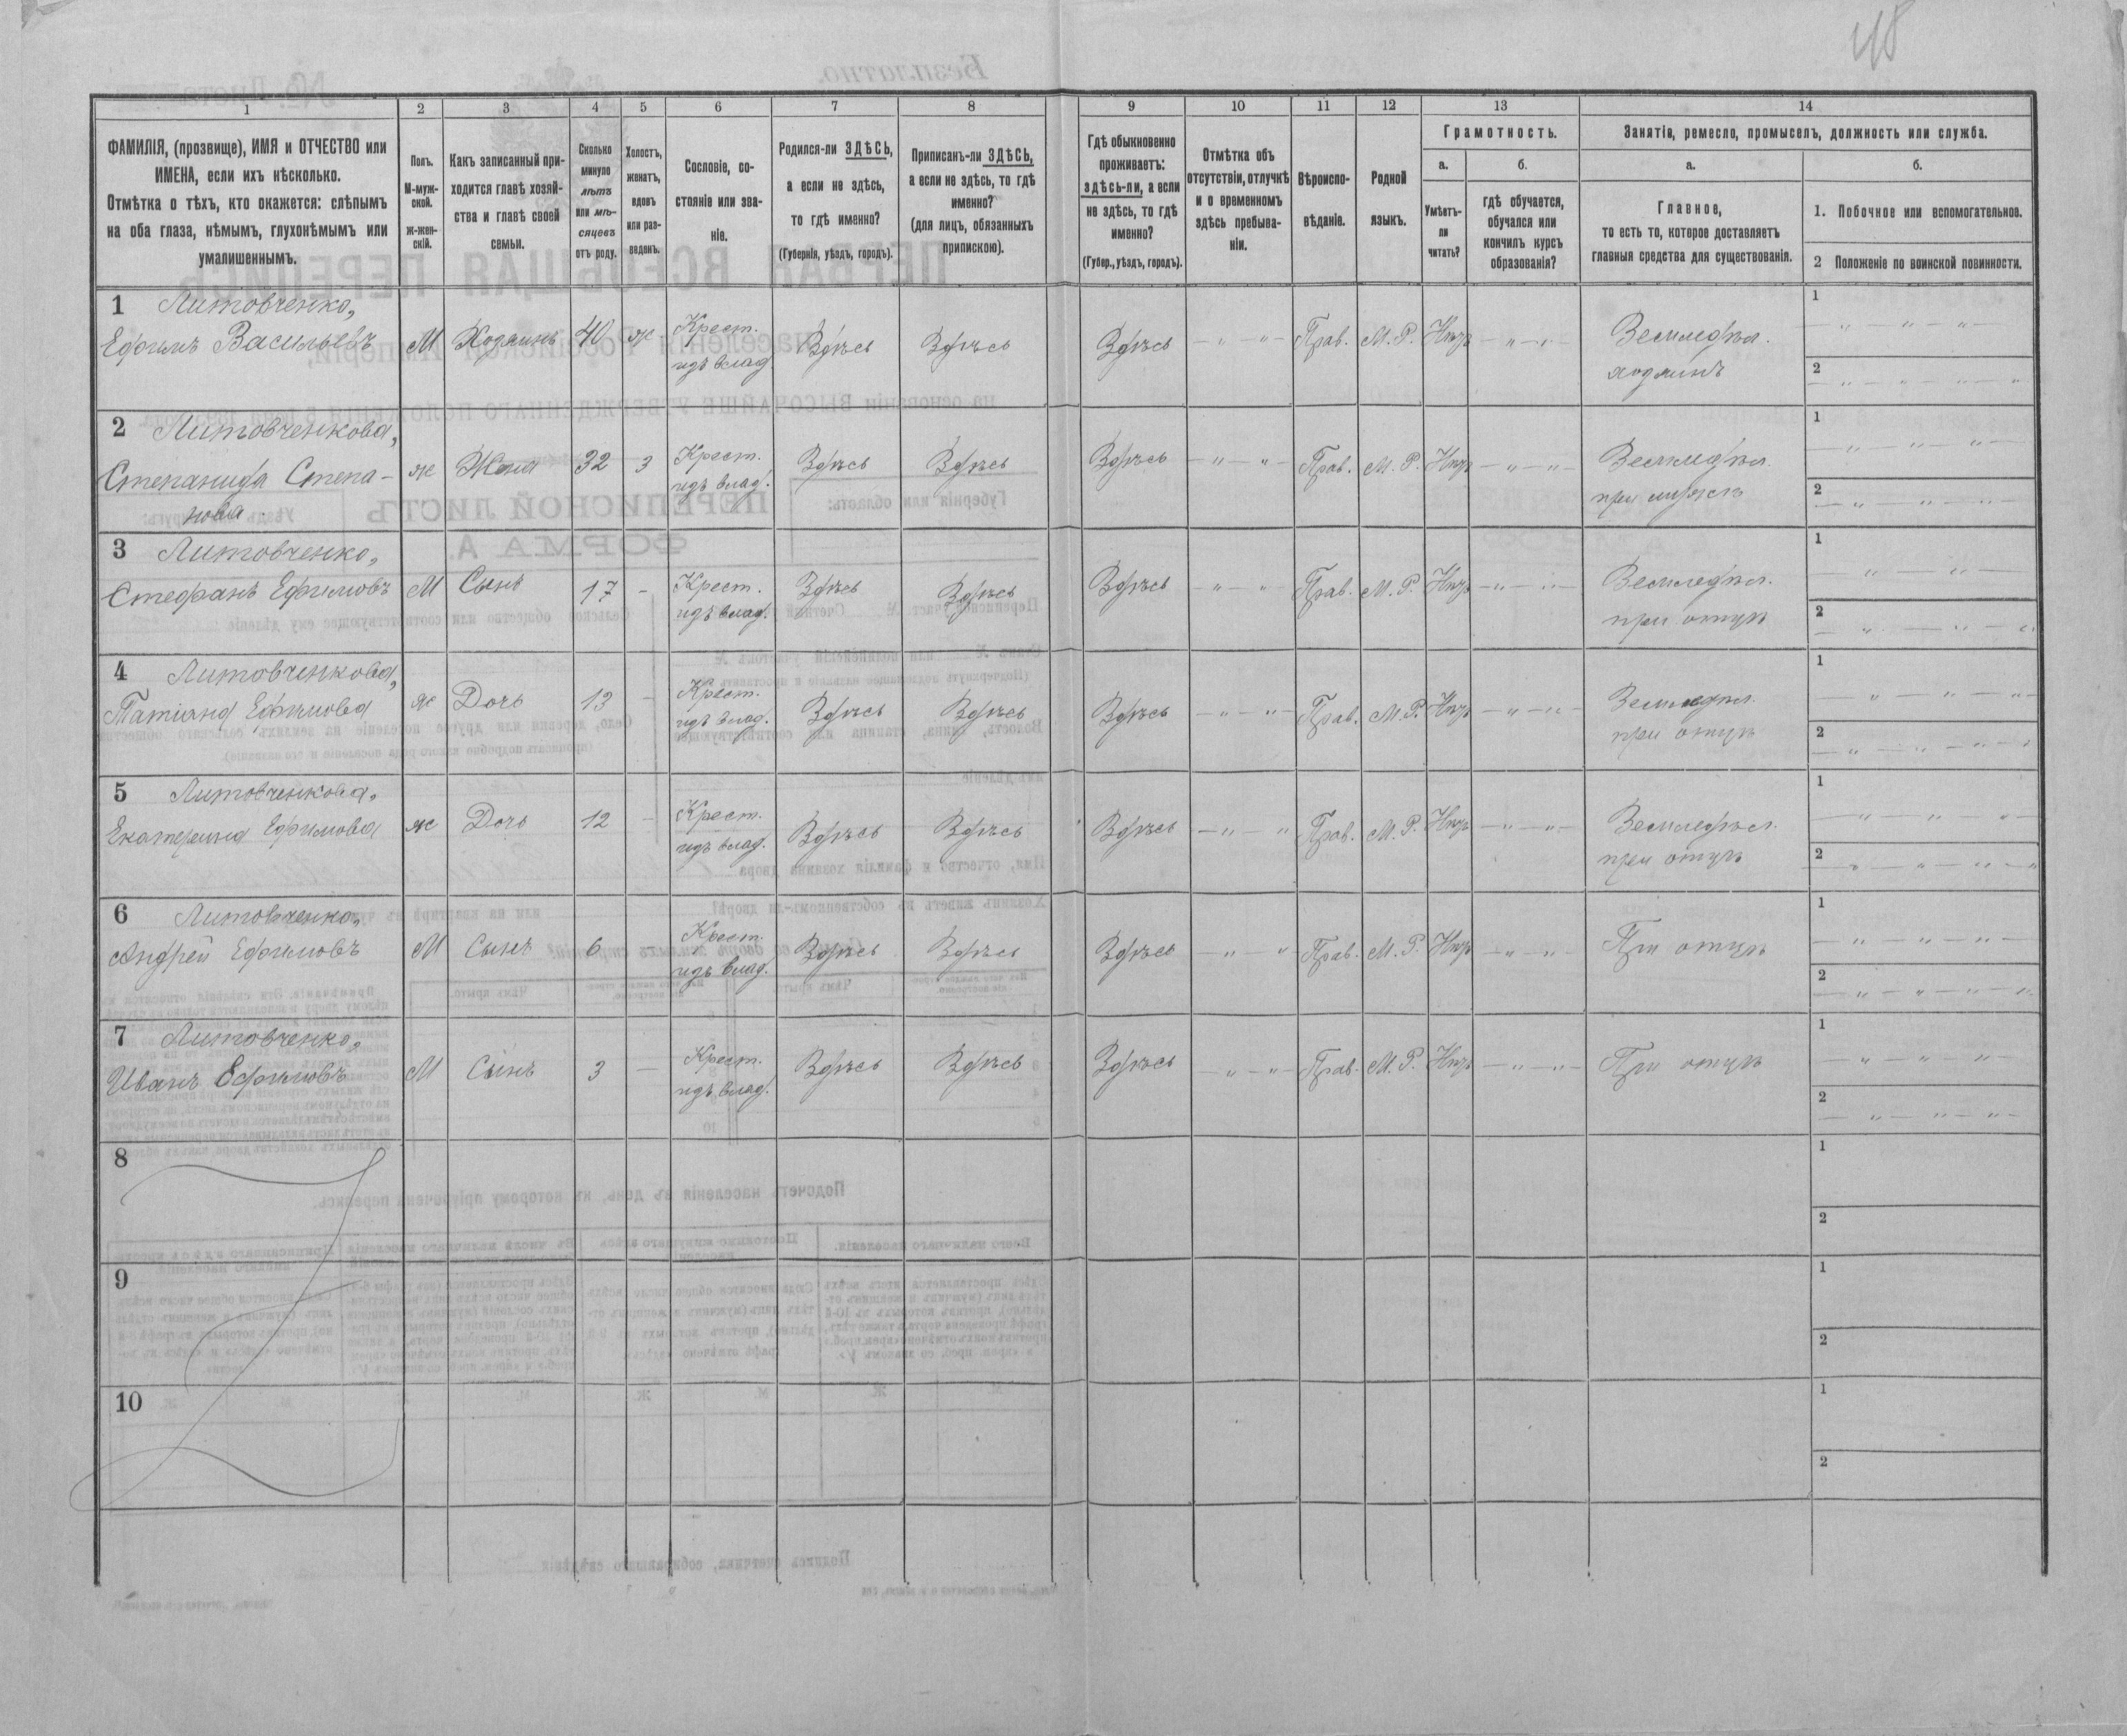 48
1
2
3
4
5
6
7
8
9
10
11
12
13
14
ФАМИЛІЯ, (прозвище), ИМЯ и ОТЧЕСТВО или
ИМЕНА, если ихъ нѣсколько.
Отмѣтка о тѣхъ, кто окажется: слѣпымъ
на оба глаза, нѣмымъ, глухонѣмымъ или
умалишеннымъ.
Полъ.
М-муж-
ской.
ж-жен-
скій.
Какъ записанный при-
ходится главѣ хозяй-
ства и главѣ своей
семьи.
Сколько
минуло
лѣтъ
или мѣ-
сяцевъ
отъ роду.
Холостъ,
женатъ,
вдовъ
или раз-
веденъ.
Сословіе, со-
стояніе или зва-
ніе.
Родился-ли ЗДѢСЬ,
а если не здѣсь,
то гдѣ именно?
(Губернія, уѣздъ, городъ).
Приписанъ-ли ЗДѢСЬ,
а если не здѣсь, то гдѣ
именно?
(для лицъ, обязанныхъ
припискою).
Гдѣ обыкновенно
проживаетъ:
здѣсь-ли, а если
не здѣсь, то гдѣ
именно?
(Губер., уѣздъ, городъ).
Отмѣтка объ
отсутствіи, отлучкѣ
и о временномъ
здѣсь пребыва-
ніи.
Вѣроиспо-
вѣданіе.
Родной
языкъ.
Грамотность.
а.
б.
Умѣетъ-
ли
читать?
гдѣ обучается,
обучался или
кончилъ курсъ
образованія?
Занятіе, ремесло, промыселъ, должность или служба.
а.
б.
Главное,
то есть то, которое доставляетъ
главныя средства для существованія.
1. Побочное или вспомогательное.
2 Положеніе по воинской повинности.
1 Литовченко,
Ефимъ Васильевъ М Хозяинъ 40 ж Крест. Здѣсь Здѣсь Здѣсь — „ „ Прав. М. Р. Нѣтъ — „ — „ — Земледѣл.
влад.
хозяинъ
1 — „ — „ — „ —
2 — „ — „ — „ — „
2 Литовченкова,
Степанида Степа- ж Жена 32 з Крест. Здѣсь Здѣсь Здѣсь — „ — „ Прав. М. Р. Нѣтъ — „ — „ — Земледѣл.
нова
влад.
при мужѣ
1 — „ — „ — „ —
2 — „ — „ — „ —
3 Литовченко,
Стефанъ Ефимовъ М Сынъ 17 - Крест. Здѣсь Здѣсь Здѣсь — „ — „ Прав. М. Р. Нѣтъ — „ — „ — Земледѣл.
влад.
при отцѣ
1 — „ — „ —
2 — „ — „ — „
4 Литовченкова,
Татіана Ефимова ж Дочь 13 — Крест. Здѣсь Здѣсь Здѣсь — „ — „ Прав. М. Р. Нѣтъ — „ — „ — Земледѣл.
влад.
при отцѣ
1 — „ — „ — „ —
2 — „ — „ — „ — „
5 Литовченкова,
Екатерина Ефимова ж Дочь 12 — Крест. Здѣсь Здѣсь Здѣсь — „ „ Прав. М. Р. Нѣтъ — „ — „ — Земледѣл.
влад.
при отцѣ
1 — „ — „ — „ —
2 — „ — „ — „ — „
6 Литовченко,
Андрей Ефимовъ М Сынъ 6 — Крест. Здѣсь Здѣсь Здѣсь — „ — „ Прав. М. Р. Нѣтъ — „ — „ — При отцѣ
влад.
1 — „ — „ — „ —
2 — „ — „ — „ — „
7 Литовченко,
Иванъ Ефимовъ М Сынъ 3 — Крест. Здѣсь Здѣсь Здѣсь — „ — „ — Прав. М. Р. Нѣтъ — „ — „ — При отцѣ
влад.
1 — „ — „ — „ —
2 — „ — „ — „ —
8
1
2
9
1
2
10
1
2